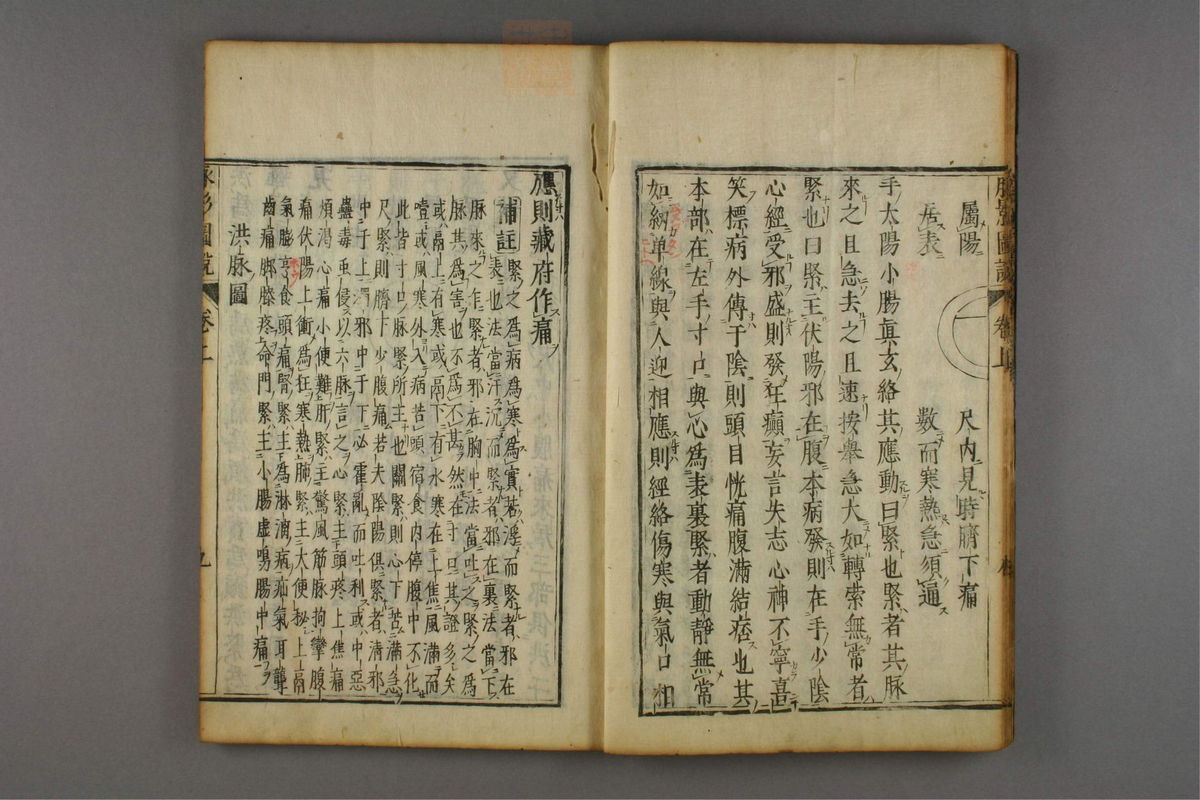 脈影圖說 卷上
屬陽 尺內見時臍下痛
居表 數而寒熱急須通
手太陽小腸眞玄絡其應動曰緊也緊者其脈
來之且急去之且速按舉急大如轉索無常者
緊也曰緊主伏陽邪在腹本病發則在手少陰
心經受邪盛則發狂癲妄言失志心神不寧喜
笑標病外傳于陰則頭目恍痛腹滿結痞也其
本部在左手寸口與心爲表裏緊者動靜無常
如紉單線與人迎相應則經絡傷寒與氣口相
應則藏府作痛
補註 緊之爲病爲寒爲實若浮而緊者邪在
表也法當汗沉而緊者邪在裏法當下
脈來之作緊者邪在胸中法當吐之緊之爲
脈其爲害也不爲不甚然在寸口其證多矣
或膈上有寒或膈下有水寒在上焦風滿而
噎或風寒外入病苦頭宿食內停腹中不化
此皆寸口脈緊所主也關緊則心下苦滿急
尺緊則臍下少腹痛若夫陰陽俱緊者淸邪
中于上濁邪中于下必霍亂而吐利或中惡
蠱毒重侵以六脈言之心緊主頭疼上焦痛
煩渴心痛小便難肝緊主驚風筋脈拘攣腹
痛伏陽上衝爲狂寒熱肺緊主大便秘上膈
氣脇亭食頭痛腎緊主爲淋瀝病疝氣耳聾
齒痛脚膝疼命門緊主小腸虛鳴腸中痛
洪脈圖
脉影圖說 卷上 九